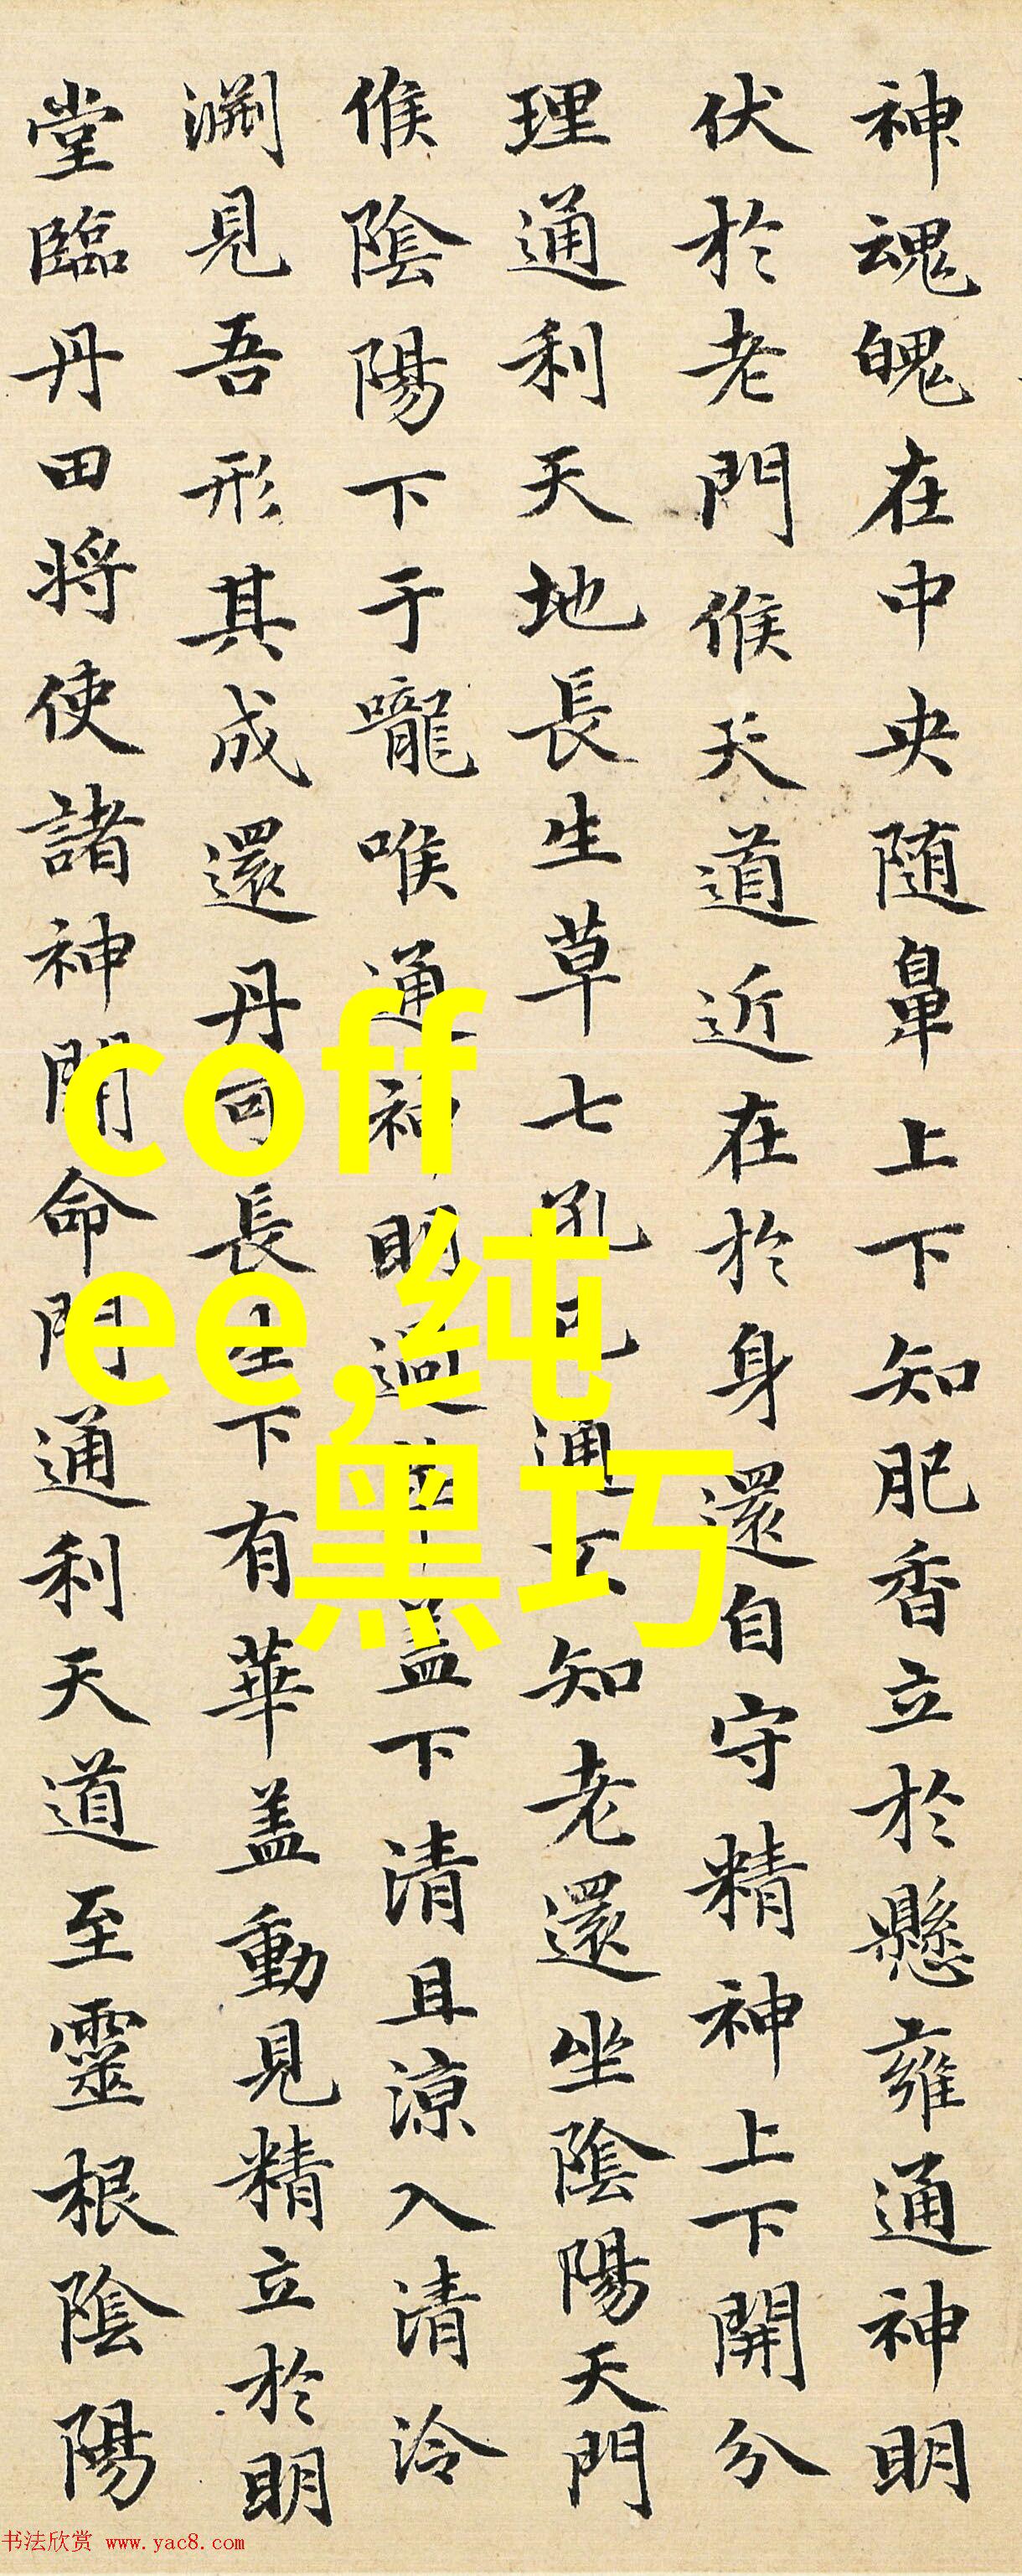 神魂魄在中央随鼻上下知肥香立於懸雍通神明
伏於老門候天道近在於身還自守精神上下開分
理通利天地長生草七孔已通不知老還坐陰陽天門
候陰陽下于嚨喉通神明過華蓋下清且涼入清泠
淵見吾形其成還丹可長生下有華蓋動見精立於明
堂臨丹田将使諸神開命門通利天道至靈根陰陽
coff
ee,纯
黑巧
书法欣赏 www.yac8.com